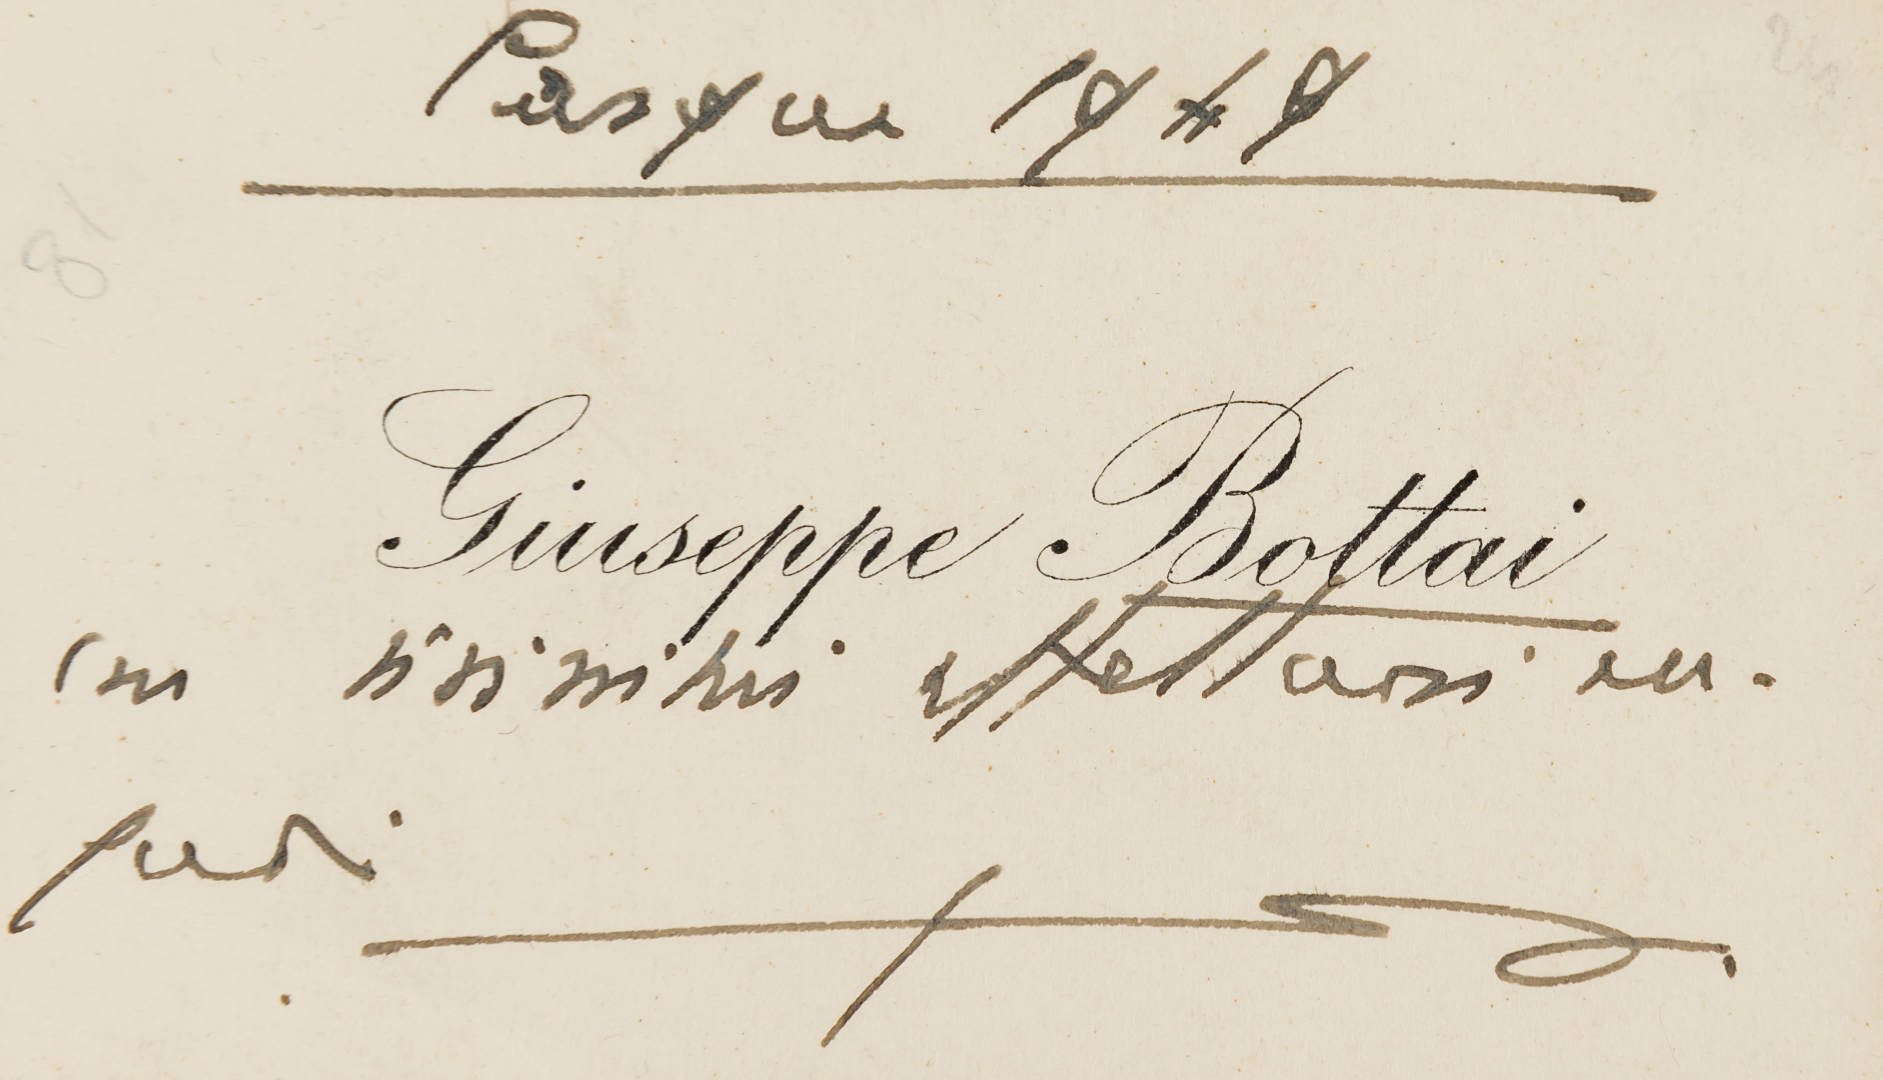 Pasqua 1949
Giuseppe Bottai
con vivissimi affettuosi au-
guri